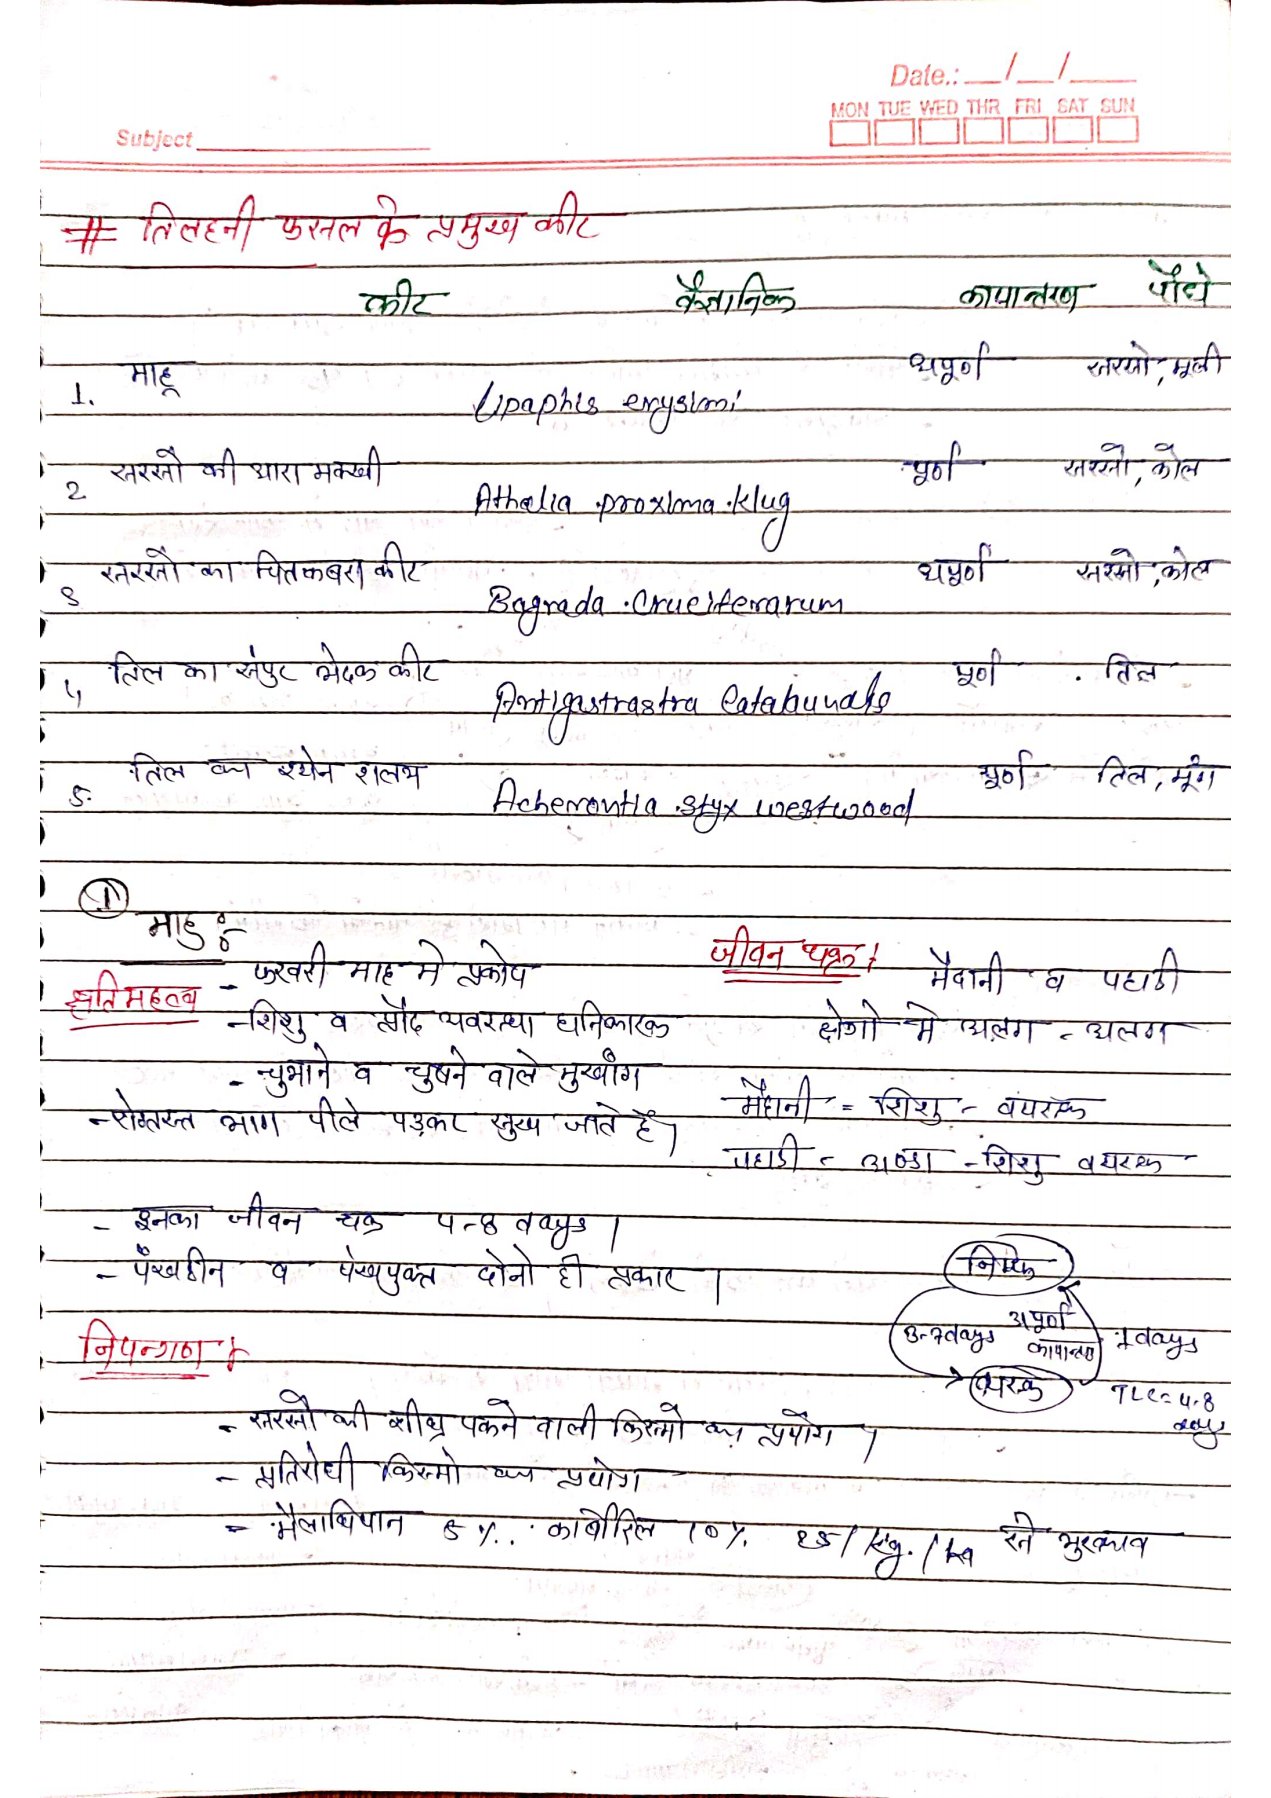 Date.: __/__/____
MON TUE WED THR FRI SAT SUN
Subject
# तिलहनी फसल के प्रमुख कीट
कीट वैज्ञानिक कायान्तरण पौधे
1. माहू Lipaphis erysimi अपूर्ण सरसो, मूली
2 सरसों की आरा मक्खी Athalia proxima klug पूर्ण सरसो, कोल
3 सरसों का चितकबरा कीट Bagrada Cruciferarum अपूर्ण सरसो, कोल
4 तिल का संपुट भेदक कीट Antigastrastra Catalaunalis पूर्ण तिल
5. तिल का श्येन शलभ Acherontia styx westwood पूर्ण तिल, मूंग
1
माहु :-
- फरवरी माह मे प्रकोप
क्षति महत्व
- शिशु व प्रौढ अवस्था हानिकारक
- चुभाने व चुषने वाले मुखांग
- रोगग्रस्त भाग पीले पड़कर सुख जाते है।
जीवन चक्र :
मैदानी व पहाडी
क्षेत्रो मे अलग - अलग
मैदानी = शिशु - वयस्क
पहाडी - अण्डा - शिशु वयस्क
- इनका जीवन चक्र 4-8 days।
- पंखहीन व पंखयुक्त दोनो ही प्रकार।
निम्फ
3-7days अपूर्ण कायान्तरण 1days
वयस्क
TLC=4-8 days
नियन्त्रण :
- सरसों की शीघ्र पकने वाली किस्मो का प्रयोग।
- प्रतिरोधी किस्मो का प्रयोग
- मैलाथियान 5%. कार्बोरिल 10% 25/kg./ha से भुरकाव